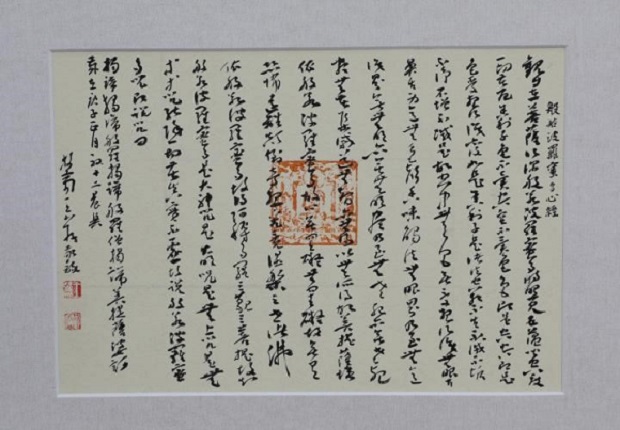 般若波羅蜜多心經
觀自在菩薩行深般若波羅蜜多時照見五蘊皆空度
一切苦厄舍利子色不異空空不異色色即是空空即是
色受想行識亦復如是舍利子是諸法空相不生不滅不垢
不淨不增不減是故空中無色無受想行識無眼
耳鼻舌身意無色聲香味觸法無眼界乃至無意
識界無無明亦無無明盡乃至無老死亦無老死
盡無苦集滅道無智亦無得以無所得故菩提薩埵
依般若波羅蜜多故心無罣礙無罣礙故無有
恐怖遠離顛倒夢想究竟涅槃三世諸佛
依般若波羅蜜多故得阿耨多羅三藐三菩提故知
般若波羅蜜多是大神咒是大明咒是無上咒是無
等等咒能除一切苦真實不虛故說般若波羅蜜
多咒即說咒曰
揭諦揭諦般羅揭諦般羅僧揭諦菩提薩婆訶
庚子正月初十二